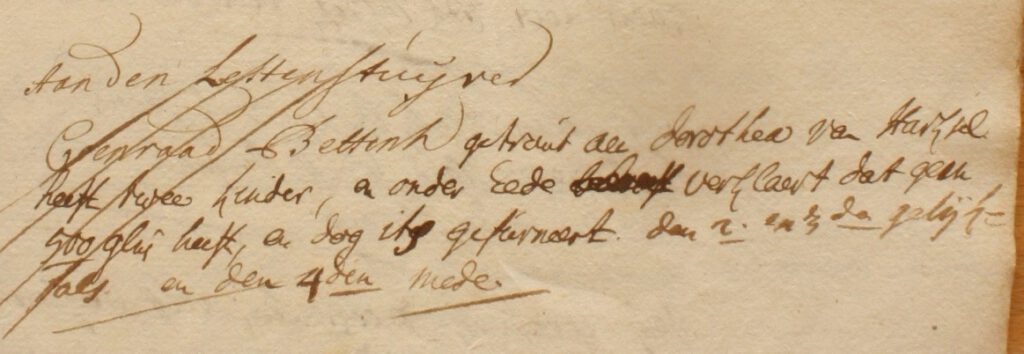 Aan den Lettenstuyver
Coenraad Bettink getrout aen dorothea van Harxel
heeft twee kinder, en onder eede verklaert dat geen
500 gln heeft, en dog its gefurneert. den 2. en 3 den gelijk=
fals en den 4den mede